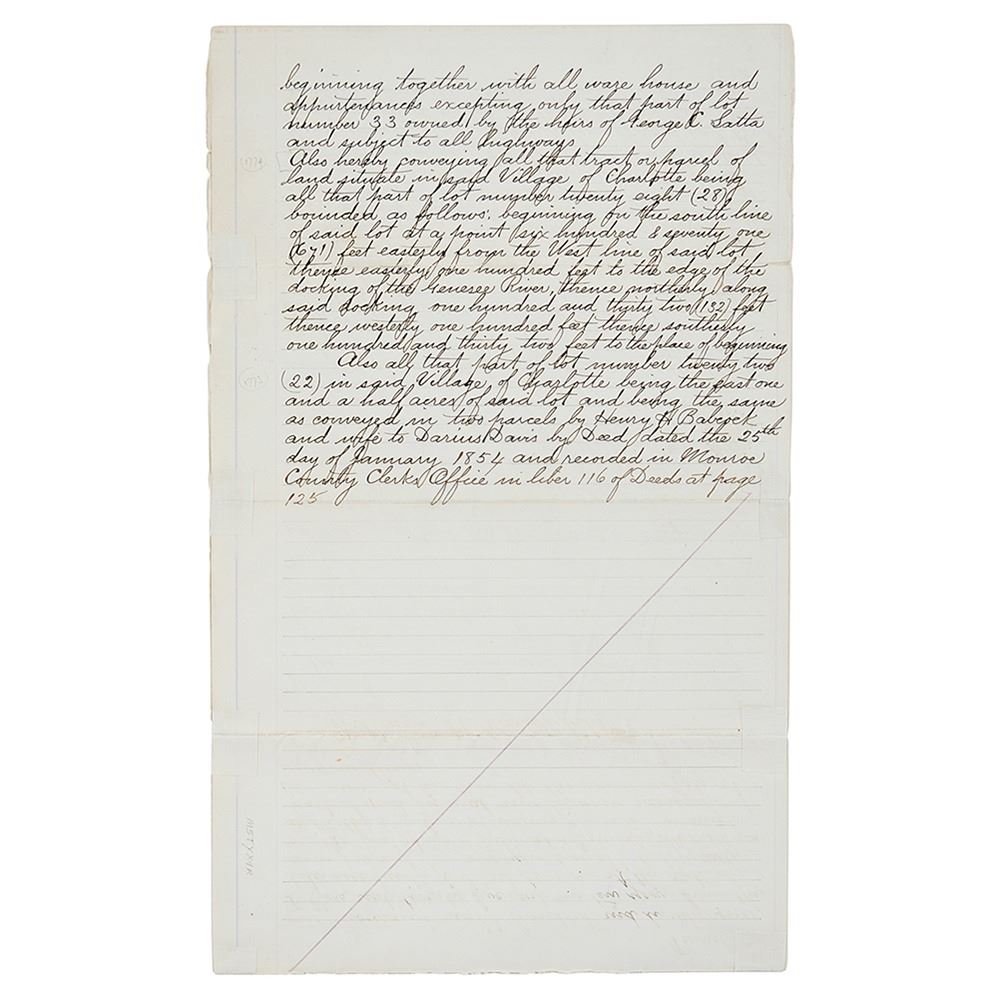 beginning together with all ware house and
appurtenances excepting only that part of lot
number 33 owned by the heirs of George C. Latta
and subject to all highways
Also hereby conveying all that tract or parcel of
land situate in said Village of Charlotte being
all that part of lot number twenty eight (28)
bounded as follows: beginning on the south line
of said lot at a point six hundred & seventy one
(671) feet easterly from the West line of said lot
thence easterly one hundred feet to the edge of the
docking of the Genesee River, thence northerly along
said docking one hundred and thirty two (132) feet
thence westerly one hundred feet thence southerly
one hundred and thirty two feet to the place of beginning
Also all that part of lot number twenty two
(22) in said Village of Charlotte being the east one
and a half acres of said lot and being the same
as conveyed in two parcels by Henry H Babcock
and wife to Darius Davis by Deed dated the 25th
day of January 1854 and recorded in Monroe
County Clerks Office in liber 116 of Deeds at page
125